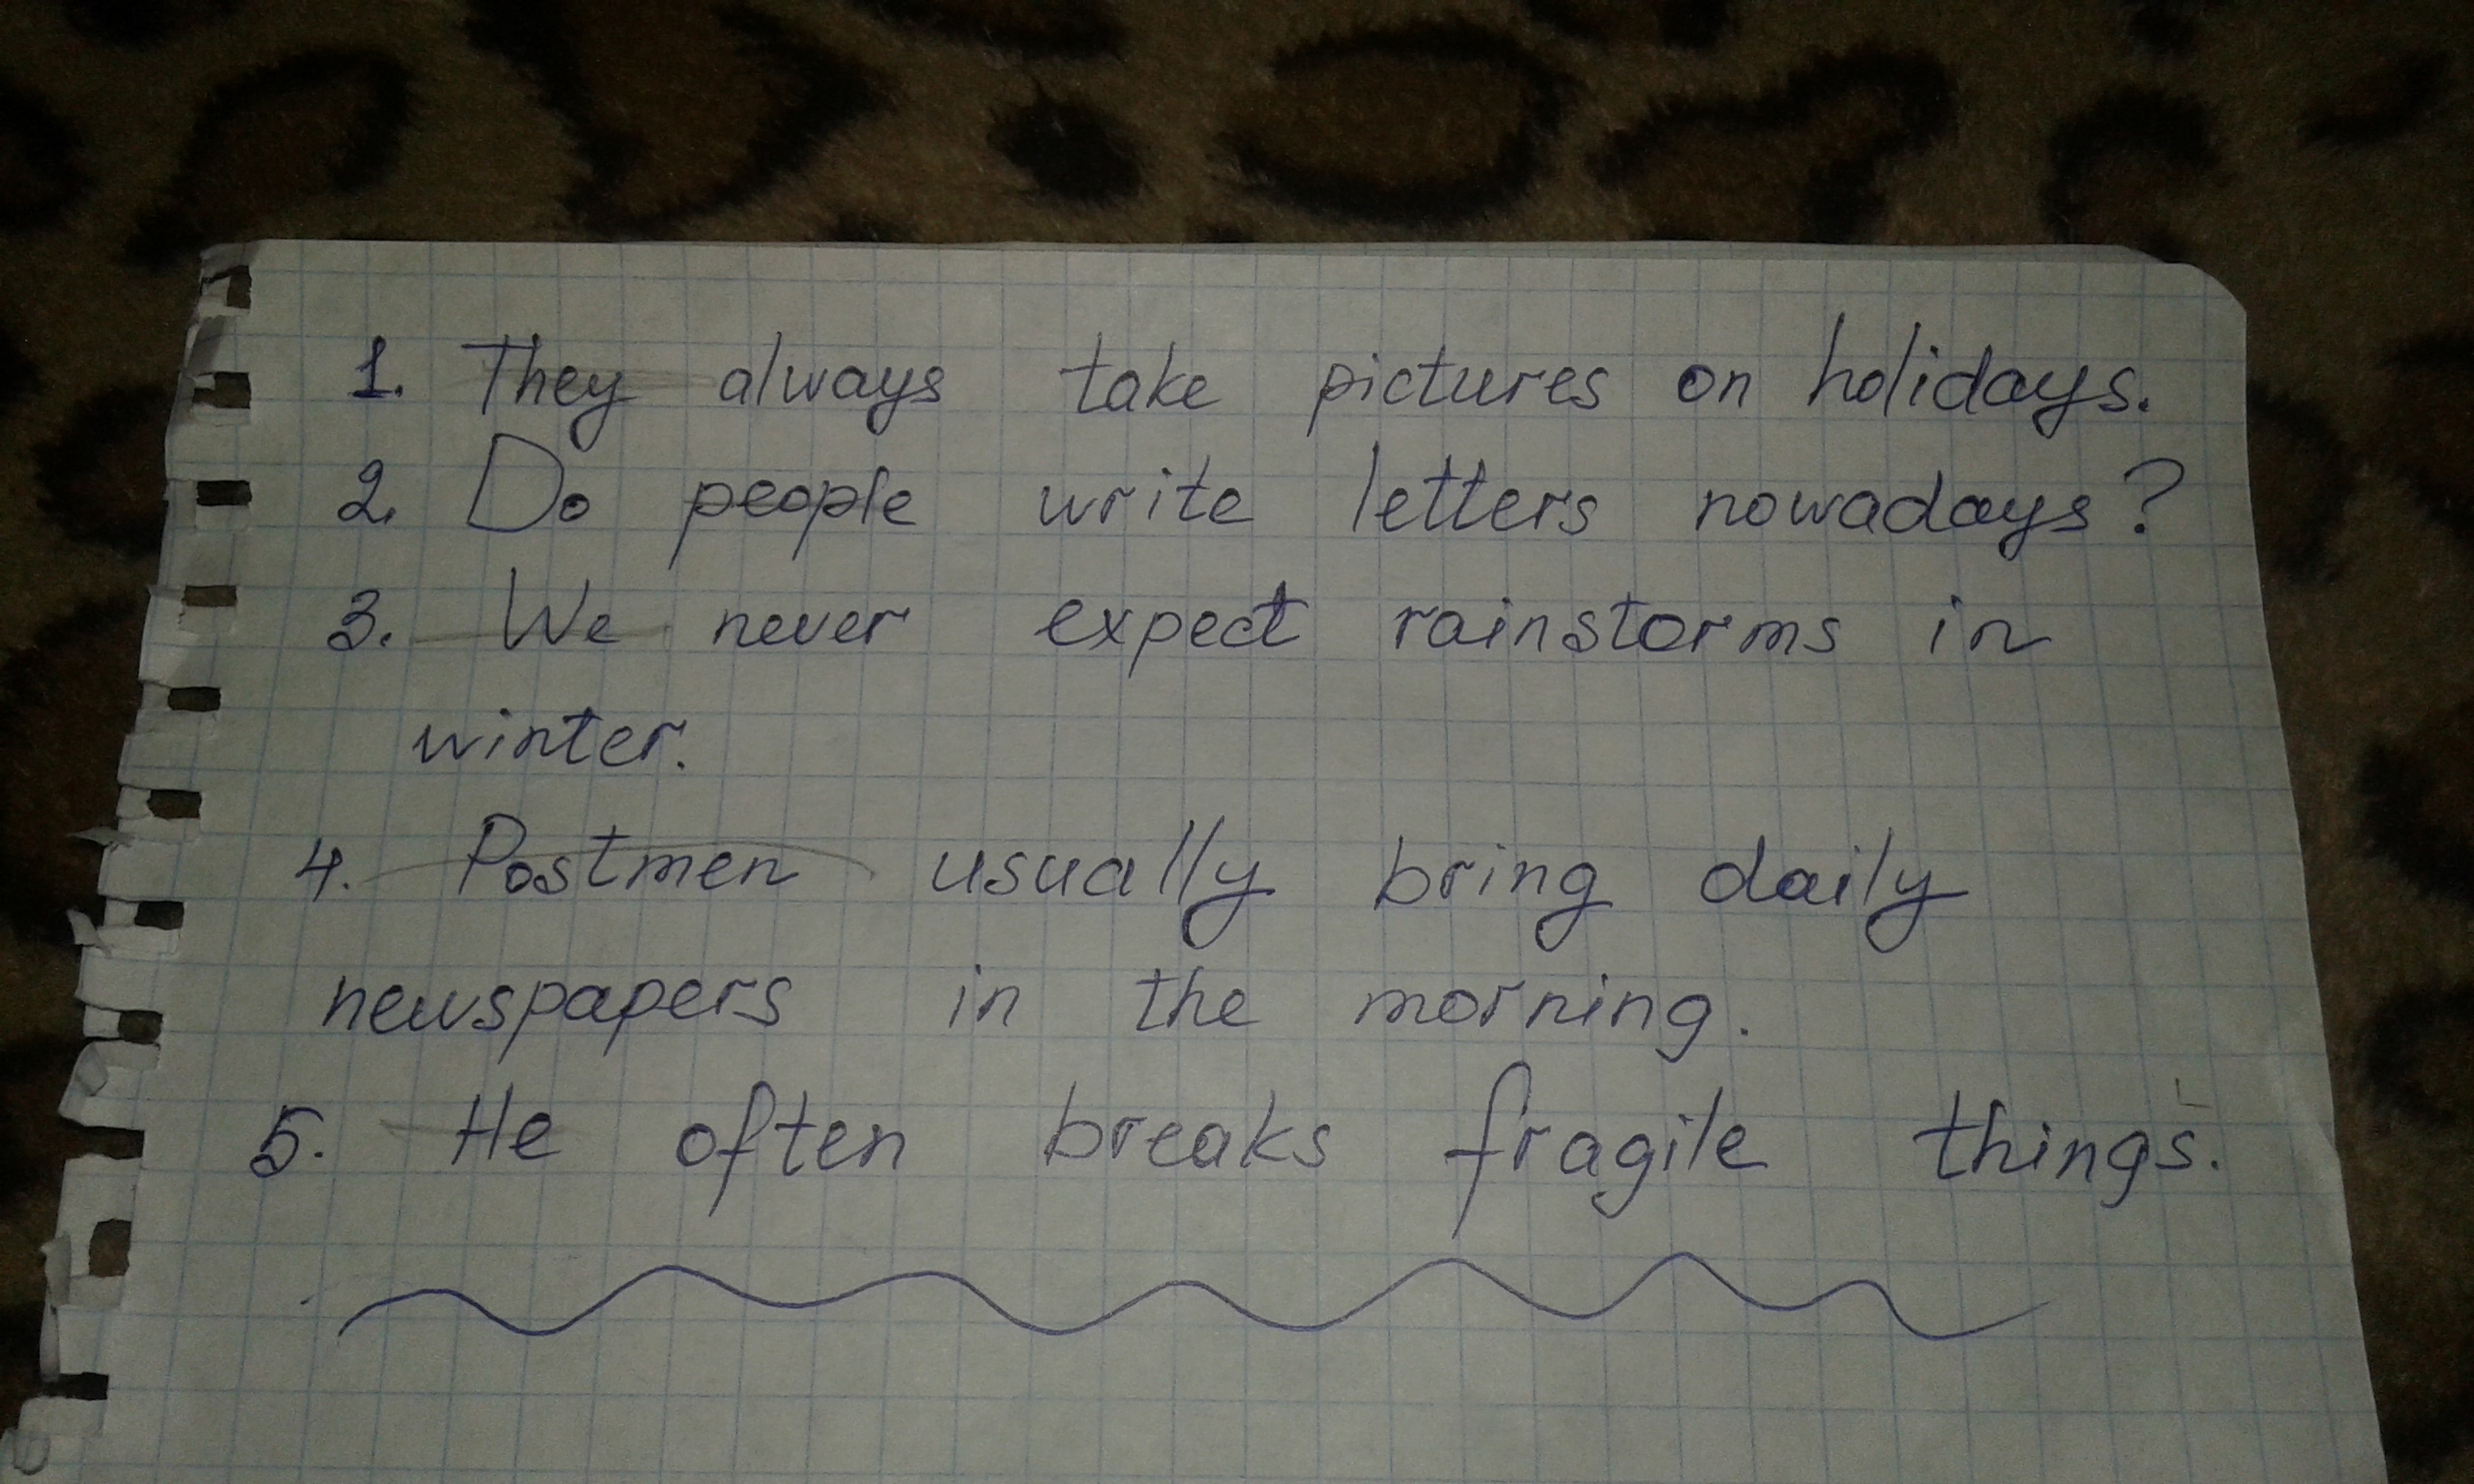 1. They always take pictures on holidays.
2. Do people write letters nowadays?
3. We never expect rainstorms in
winter.
4. Postmen usually bring daily
newspapers in the morning.
5. He often breaks fragile things.